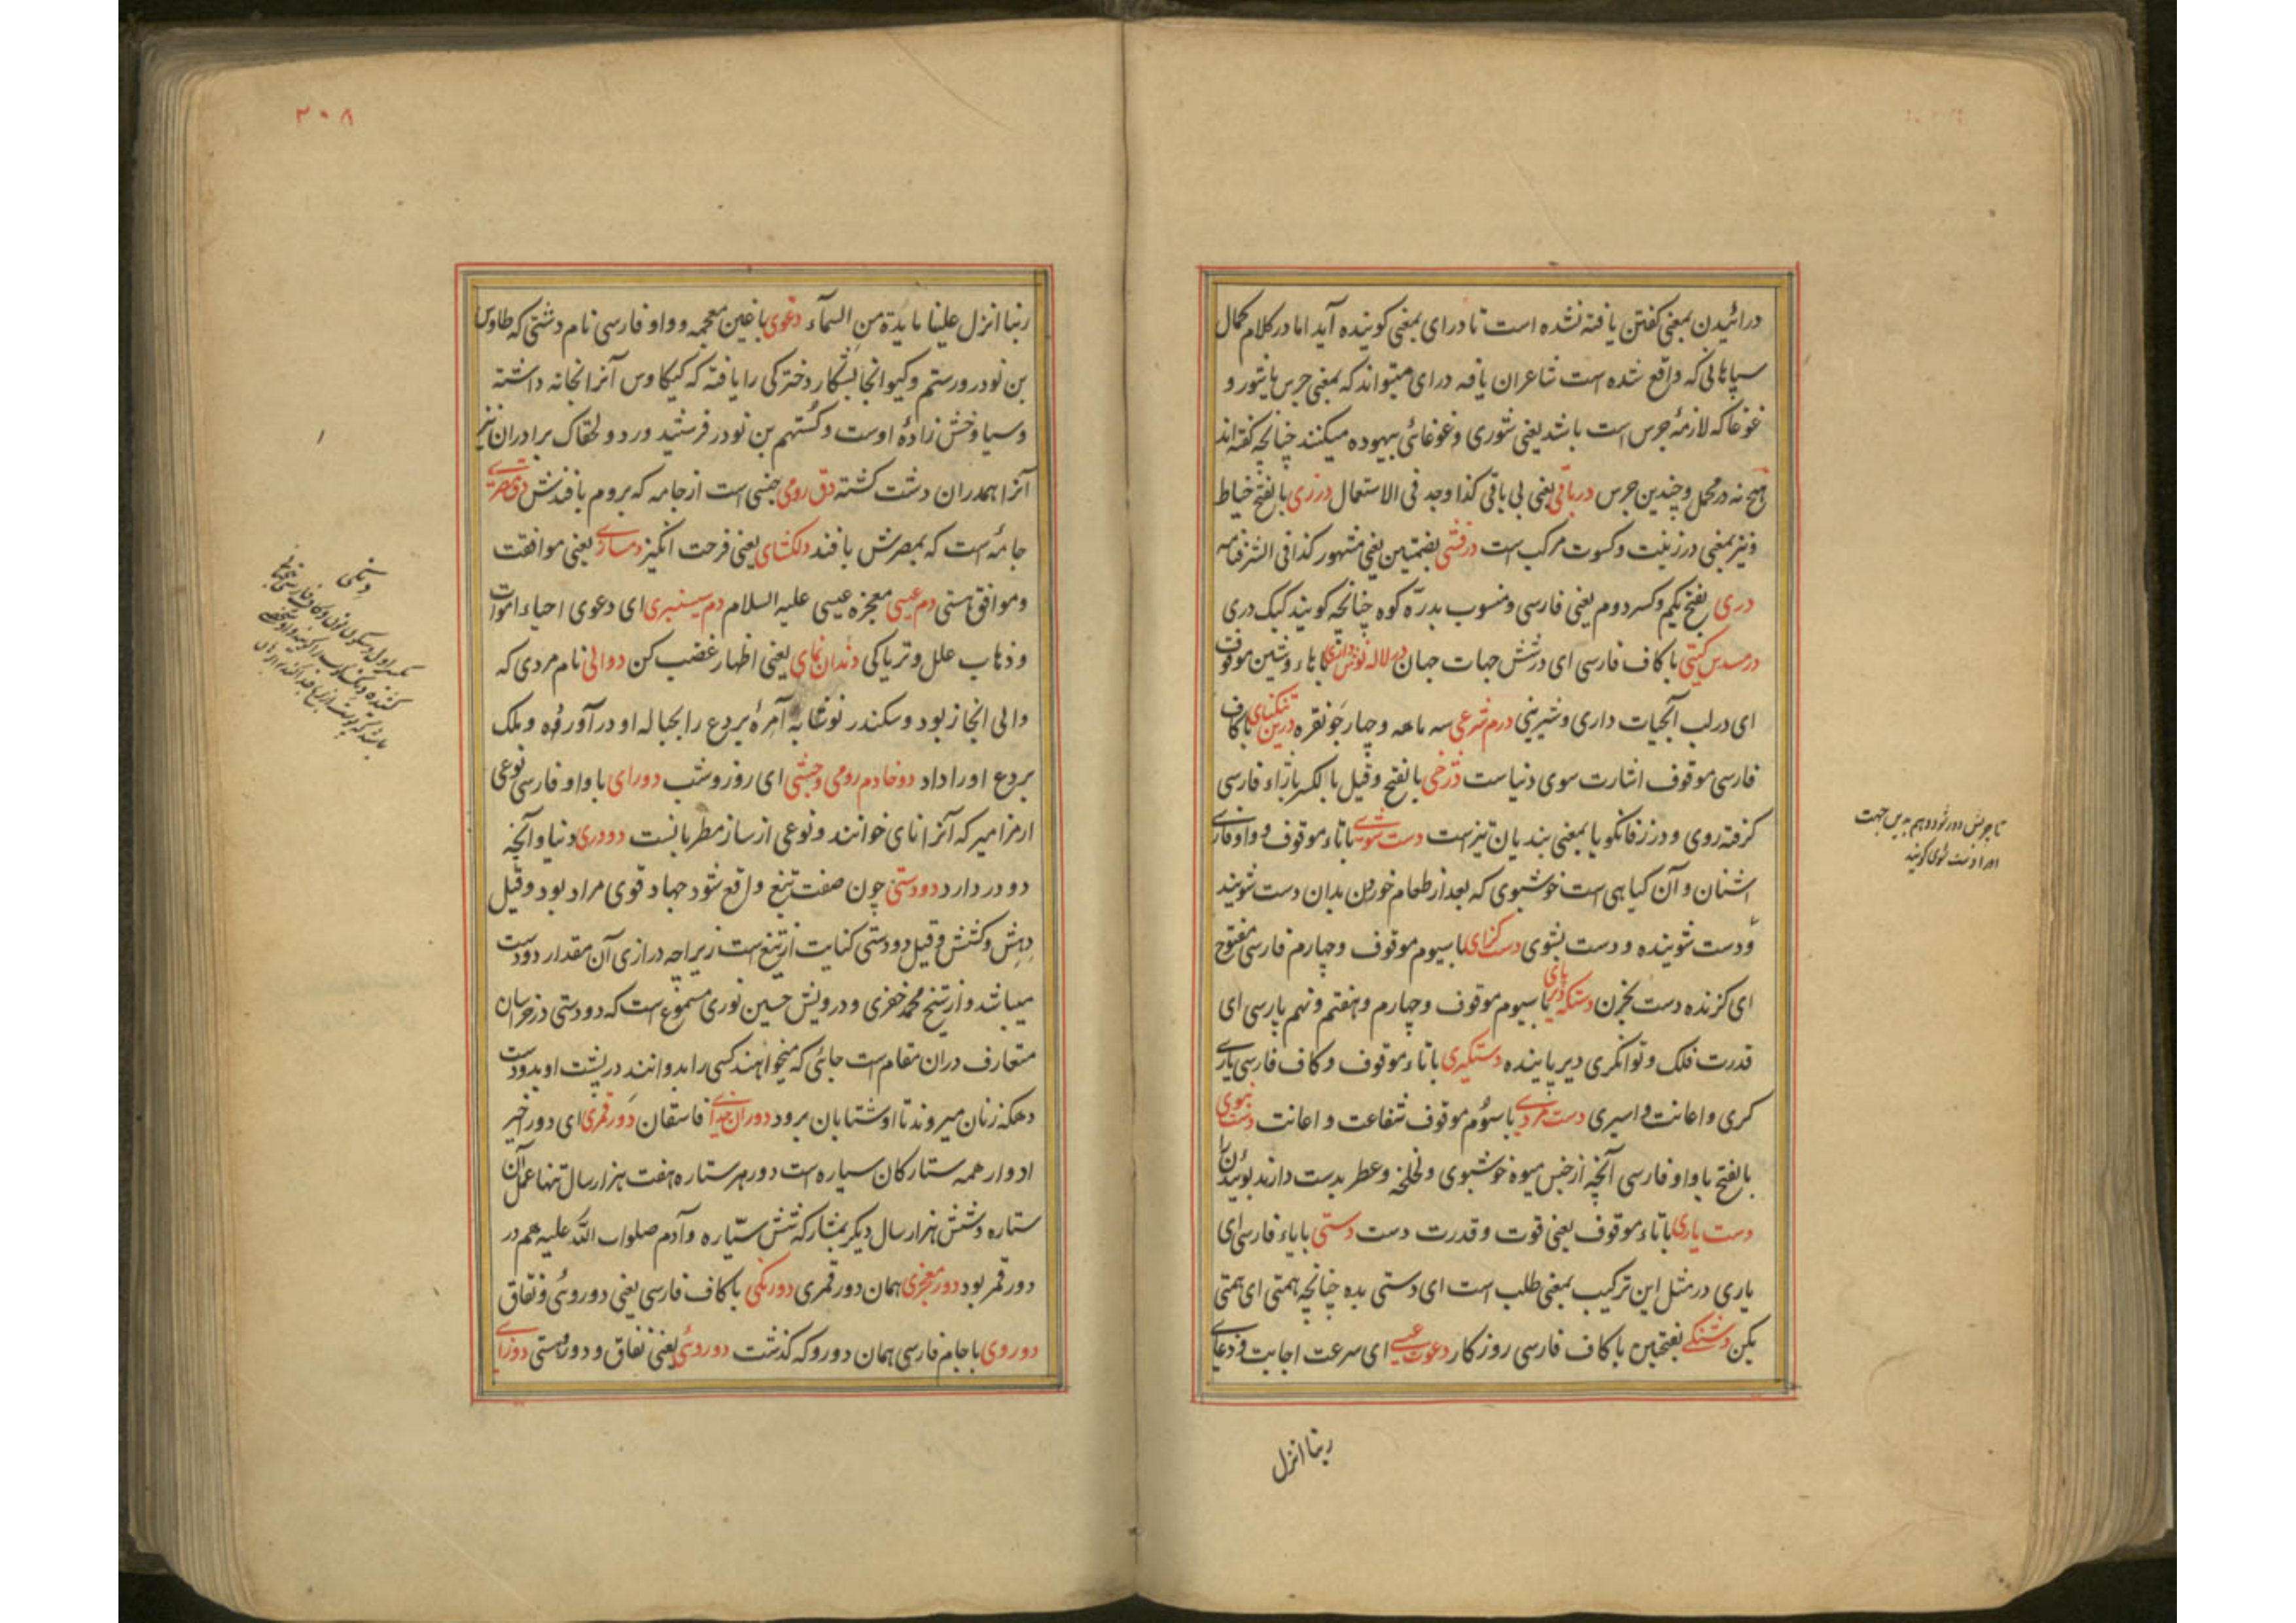 درائیدن بمعنی کفتن یافته نشده است تا درای بمعنی کوینده آید اما در کلام کمال
سپاهانی که واقع شده است شاعران یافه درای میتواند که بمعنی جرس باشور و
غوغا که لازمهٔ جرس است باشد یعنی شوری و غوغائی بیهوده میکنند چنانچه کفته اند
نه در محمل و چندین جرس درباقی یعنی بی باقی کذا وجد فی الاستعمال درزی بالفتح خیاط
و نیز بمعنی درزینت و کسوت مرکب است درفشی بضمتین یعنی مشهور کذا فی الشرفنامه
دری بفتح یکم و کسر دوم یعنی فارسی و منسوب بدرّه کوه چنانچه کویند کبک دری
در مسدس کیتی با کاف فارسی ای در شش جهات جهان در لاله نوش داری با هاء و شین موقوف
ای در لب آبحیات داری و شیرینی درم شرعی سه ماهه و چهار جو نقره درین تنکنای با کاف
فارسی موقوف اشارت سوی دنیاست دژخی بالفتح و قیل بالکسر با زاء فارسی
کرفته روی و در زفانکویا بمعنی بندیان نیز است دست شوی با تاء موقوف و واو فارسی
اشنان و آن کیاهی است خوشبوی که بعد از طعام خوردن بدان دست شویند
و دست شوینده و دست بشوی دست کزای با سیوم موقوف و چهارم فارسی مفتوح
ای کزنده دست بخزن دستکه دیر پای با سیوم موقوف و چهارم و هفتم و نهم پارسی ای
قدرت فلک و توانکری دیر پاینده دستکیری با تاء موقوف و کاف فارسی یاری
کری و اعانت و اسیری دست مردی با سوم موقوف شفاعت و اعانت دست نبوی
بالفتح با واو فارسی آنچه از جنس میوه خوشبوی و لخلخه و عطر بدست دارند بوئیدن را
دست یاری با تاء موقوف یعنی قوت و قدرت دست دستی با یاء فارسی ای
یاری در مثل این ترکیب بمعنی طلب است ای دستی بده چنانچه همتی ای همتی
بکن دشنکی بفتحتین با کاف فارسی روزکار دعوت عیسی ای سرعت اجابت و دعای
ربنا انزل
تا چربش دور شود و هم بدین جهت
اورا دست شوی کویند
۲۰۸
ربنا انزل علینا مایدة من السمآء دغوی با غین معجمه و واو فارسی نام دشتی که طاوس
بن نودر و رستم و کیو آنجا بشکار دخترکی را یافته که کیکاوس آنرا بخانه داشته
و سیاوخش زادهٔ اوست و کستهم بن نودر فرشید ورد و لهاک برادران نیز
آنرا همدران دشت کشته دق رومی جنسی است از جامه که بروم بافندش دق مصری
جامهٔ است که بمصرش بافند دلکشای یعنی فرحت انکیز دمسازی یعنی موافقت
و موافق هستی دم عیسی معجزه عیسی علیه السلام دم سیسنبری ای دعوی احیاء اموات
و ذهاب علل و تریاکی دندان نمای یعنی اظهار غضب کن دوالی نام مردی که
والی انجاز بود و سکندر نوشابه آمرهٔ بردع را بحباله او در آورده و ملک
بردع اورا داد دو خادم رومی و حبشی ای روز و شب دورای با واو فارسی نوعی
از مزامیر که آنرا نای خوانند و نوعی از ساز مطربانست دو دری دنیا و آنچه
دو در دارد دو دستی چون صفت تیغ واقع شود جهاد قوی مراد بود و قیل
دهش و کشش و قیل دو دستی کنایت از تیغ است زیراچه درازی آن مقدار دو دست
میباشد و از شیخ محمد خفری و درویش حسین نوری مسموع است که دو دستی در خراسان
متعارف دران مقام است جائی که میخواهند کسی را بدوانند در پشت او بدو دست
دهکه زنان میروند تا او شتابان برود دوران جدای فاسقان دور قمری ای دور اخیر
ادوار همه ستارکان سیاره است دور هر ستاره هفت هزار سال تنها عمل آن
ستاره و شش هزار سال دیکر بمشارکه شش سیّاره و آدم صلوات الله علیه هم در
دور قمر بود دور معجزی همان دور قمری دورنکی با کاف فارسی یعنی دوروئی و نفاق
دوروی با جام فارسی همان دورو که کذشت دوروئی یعنی نفاق و دورو هستی دوزای
دنکی